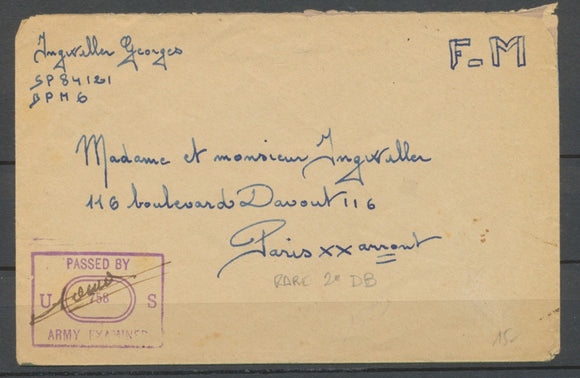 Ingweller Georges
SP 84121
BPM 6
F.M
Madame et monsieur Ingweller
116 boulevard Davout 116
Paris XX arront
RARE 2e DB
PASSED BY
U 758 S
ARMY EXAMINER
15-